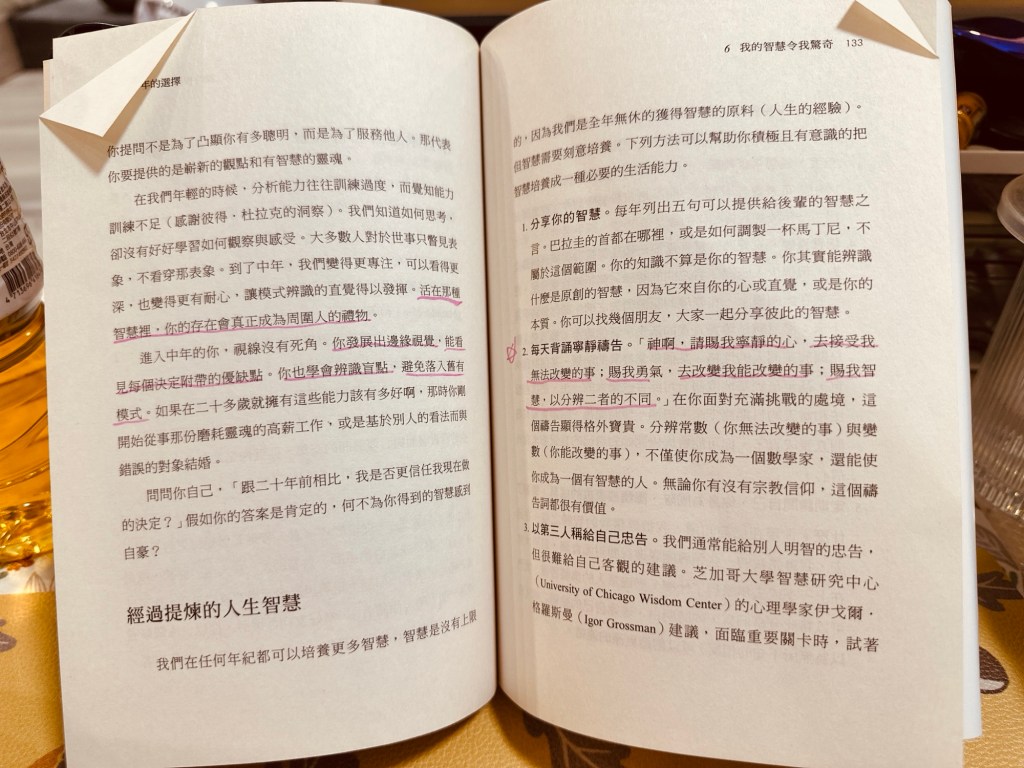 年的選擇
你提問不是為了凸顯你有多聰明，而是為了服務他人。那代表
你要提供的是嶄新的觀點和有智慧的靈魂。
在我們年輕的時候，分析能力往往訓練過度，而覺知能力
訓練不足（感謝彼得．杜拉克的洞察）。我們知道如何思考，
卻沒有好好學習如何觀察與感受。大多數人對於世事只瞥見表
象，不看穿那表象。到了中年，我們變得更專注，可以看得更
深，也變得更有耐心，讓模式辨識的直覺得以發揮。活在那種
智慧裡，你的存在會真正成為周圍人的禮物。
進入中年的你，視線沒有死角。你發展出邊緣視覺，能看
見每個決定附帶的優缺點。你也學會辨識盲點，避免落入舊有
模式。如果在二十多歲就擁有這些能力該有多好啊，那時你剛
開始從事那份磨耗靈魂的高薪工作，或是基於別人的看法而與
錯誤的對象結婚。
問問你自己，「跟二十年前相比，我是否更信任我現在做
的決定？」假如你的答案是肯定的，何不為你得到的智慧感到
自豪？
經過提煉的人生智慧
我們在任何年紀都可以培養更多智慧，智慧是沒有上限
6 我的智慧令我驚奇 133
的，因為我們是全年無休的獲得智慧的原料（人生的經驗）。
但智慧需要刻意培養。下列方法可以幫助你積極且有意識的把
智慧培養成一種必要的生活能力。
1. 分享你的智慧。每年列出五句可以提供給後輩的智慧之
言。巴拉圭的首都在哪裡，或是如何調製一杯馬丁尼，不
屬於這個範圍。你的知識不算是你的智慧。你其實能辨識
什麼是原創的智慧，因為它來自你的心或直覺，或是你的
本質。你可以找幾個朋友，大家一起分享彼此的智慧。
2. 每天背誦寧靜禱告。「神啊，請賜我寧靜的心，去接受我
無法改變的事；賜我勇氣，去改變我能改變的事；賜我智
慧，以分辨二者的不同。」在你面對充滿挑戰的處境，這
個禱告顯得格外寶貴。分辨常數（你無法改變的事）與變
數（你能改變的事），不僅使你成為一個數學家，還能使
你成為一個有智慧的人。無論你有沒有宗教信仰，這個禱
告詞都很有價值。
3. 以第三人稱給自己忠告。我們通常能給別人明智的忠告，
但很難給自己客觀的建議。芝加哥大學智慧研究中心
（University of Chicago Wisdom Center）的心理學家伊戈爾．
格羅斯曼（Igor Grossman）建議，面臨重要關卡時，試著